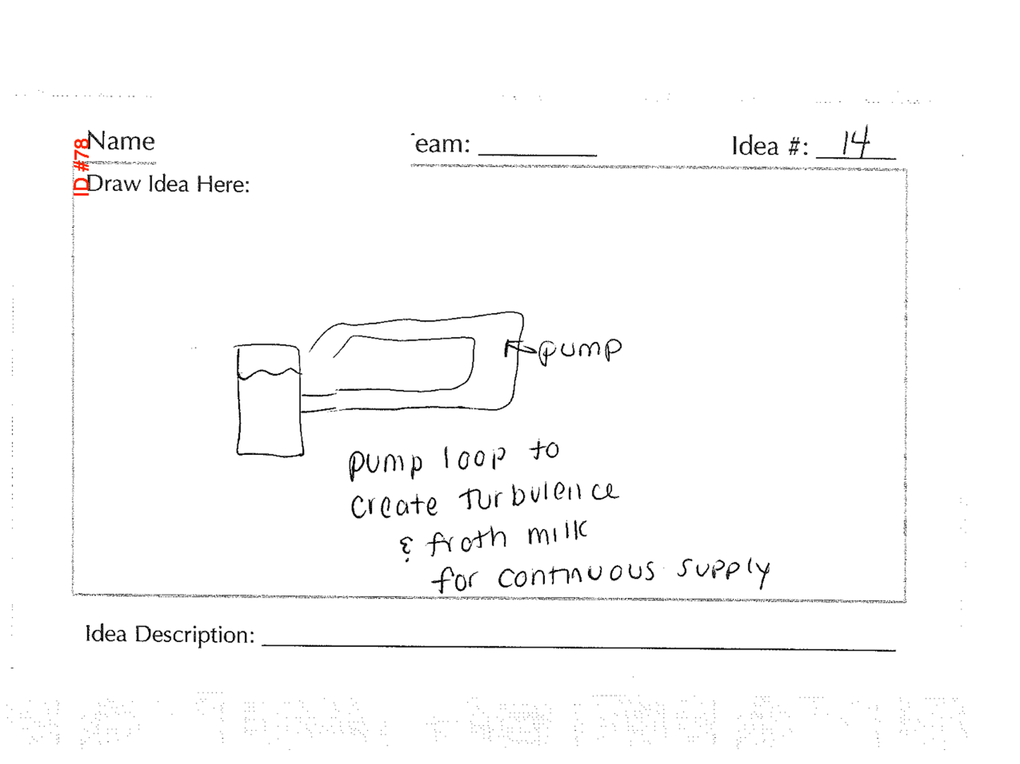 ID #78
Name eam: Idea #: 14
Draw Idea Here:
pump
pump loop to
create turbulence
& froth milk
for continuous supply
Idea Description: